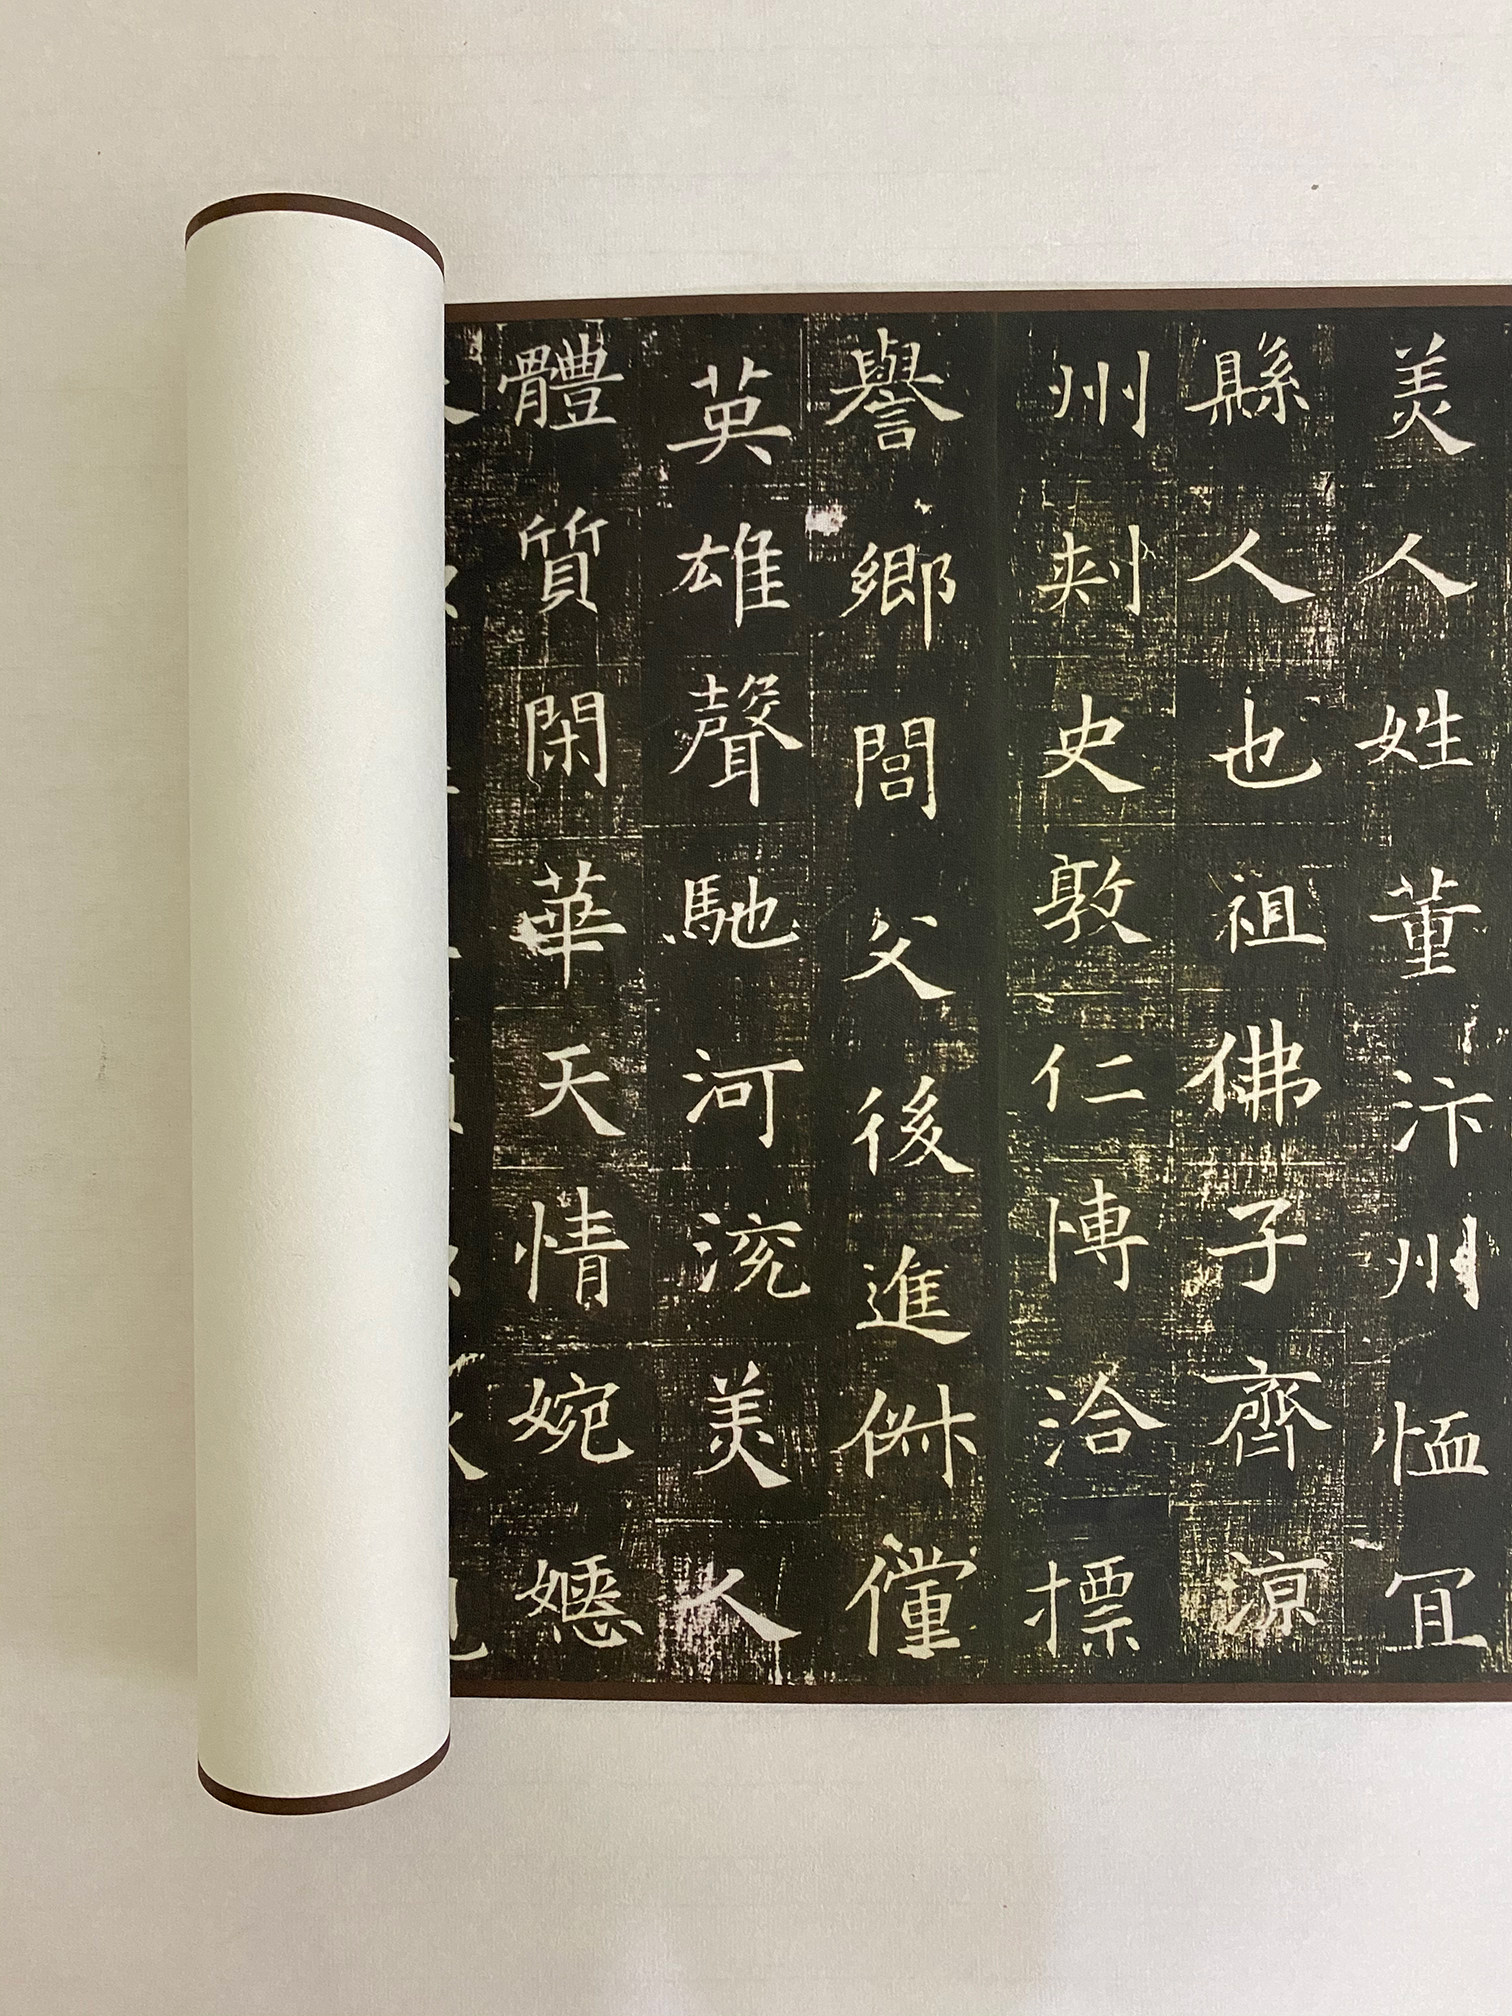 美人姓董汴州恤冝
縣人也祖佛子齊涼
州刾史敦仁博洽摽
譽鄉閭父後進俶儻
英雄聲馳河浣美人
體質閑華天情婉嫕